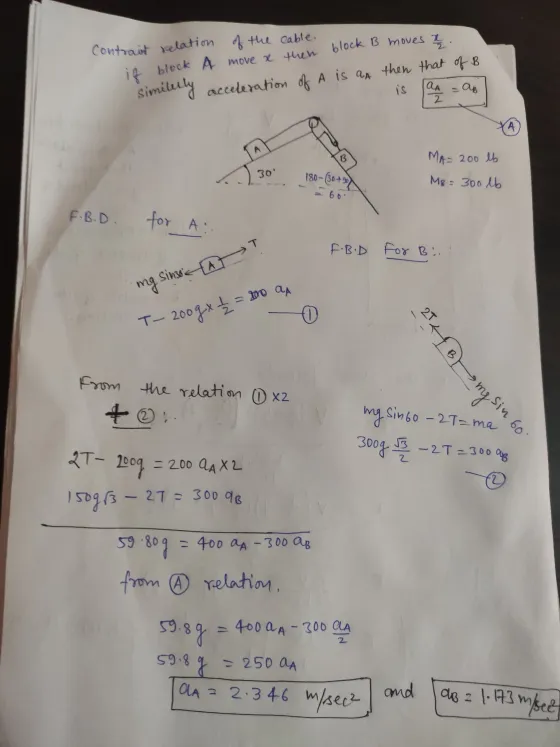 Contraint relation of the cable.
if block A move x then block B moves x/2.
Similerly acceleration of A is aA then that of B
is aA/2 = aB
A
A
B
30°
180-(30+90)
= 60°
MA = 200 lb
MB = 300 lb
F.B.D. for A:.
T
A
mg sin30
T - 200g × 1/2 = 200 aA
1
F.B.D For B:.
2T
B
mg sin 60
mg sin60 - 2T = ma
300g √3/2 - 2T = 300 aB
2
From the relation 1 ×2
+ 2 :.
2T - 200g = 200 aA × 2
150g√3 - 2T = 300 aB
59.80g = 400 aA - 300 aB
from A relation.
59.8g = 400 aA - 300 aA/2
59.8g = 250 aA
aA = 2.346 m/sec² and aB = 1.173 m/sec²